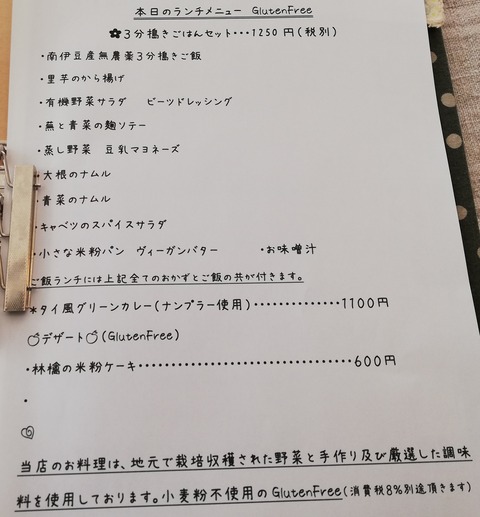 本日のランチメニュー GlutenFree
✽3分搗きごはんセット・・・1250円(税別)
・南伊豆産無農薬3分搗きご飯
・里芋のから揚げ
・有機野菜サラダ ビーツドレッシング
・蕪と青菜の麹ソテー
・蒸し野菜 豆乳マヨネーズ
・大根のナムル
・青菜のナムル
・キャベツのスパイスサラダ
・小さな米粉パン ヴィーガンバター ・お味噌汁
ご飯ランチには上記全てのおかずとご飯の共が付きます。
*タイ風グリーンカレー(ナンプラー使用)・・・・・・・・・・・・・・1100円
デザート(GlutenFree)
・林檎の米粉ケーキ・・・・・・・・・・・・・・・・・・・・・・・・・・・・・・・・600円
・
当店のお料理は、地元で栽培収穫された野菜と手作り及び厳選した調味
料を使用しております。小麦粉不使用のGlutenFree(消費税8%別途頂きます)